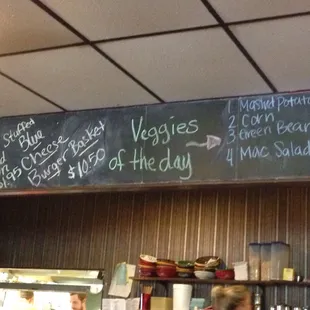 Stuffed
Blue
Cheese
Burger Basket
$10.50
Veggies
of the day
1 Mashed Potato
2 Corn
3 Green Bean
4 Mac Salad